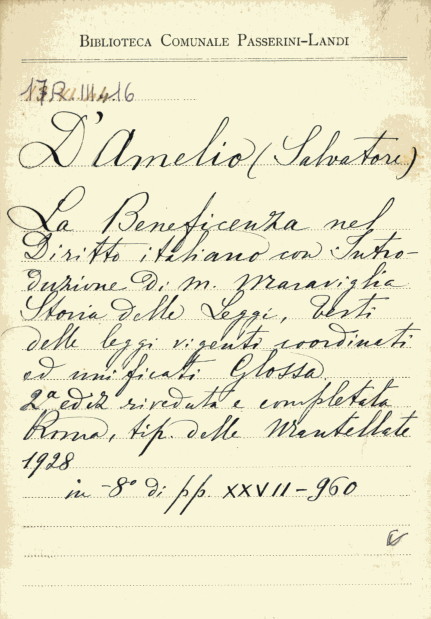 BIBLIOTECA COMUNALE PASSERINI-LANDI
17R.III.16
D'Amelio (Salvatore)
La Beneficenza nel
Diritto italiano con Intro-
duzione di M. Maraviglia
Storia delle Leggi, Testi
delle leggi vigenti coordinati
ed unificati Glossa
2ª ediz riveduta e completata
Roma, tip. delle Mantellate
1928
in -8° di pp. XXVII-960